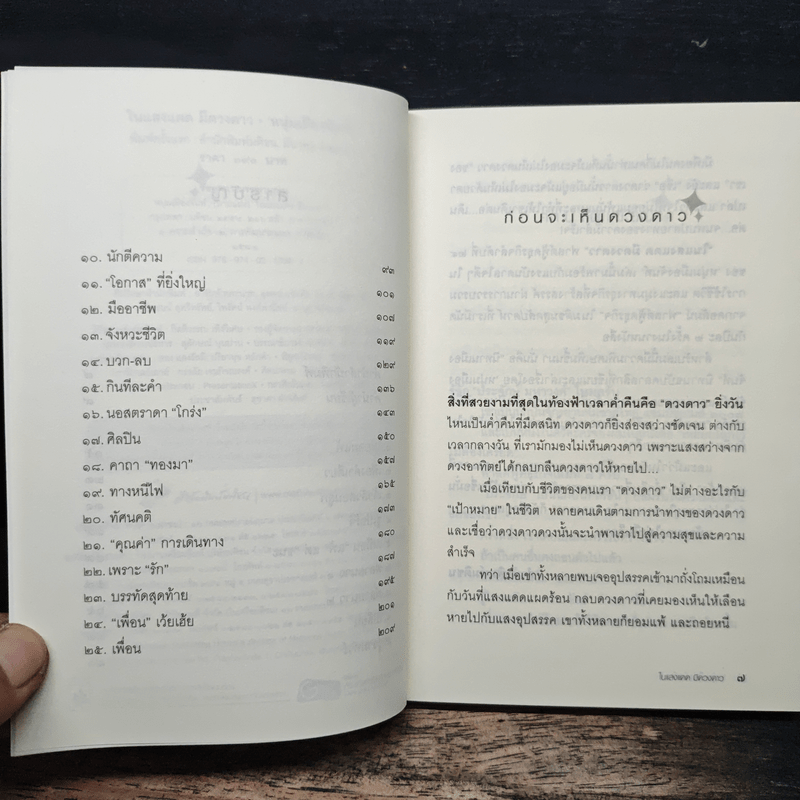 ๑๐. นักตีความ ๙๓
๑๑. “โอกาส” ที่ยิ่งใหญ่ ๑๐๑
๑๒. มืออาชีพ ๑๐๗
๑๓. จังหวะชีวิต ๑๑๙
๑๔. บวก-ลบ ๑๒๙
๑๕. กินทีละคำ ๑๓๖
๑๖. นอสตราดา “โกร่ง” ๑๔๓
๑๗. ศิลปิน ๑๕๐
๑๘. คาถา “ทองมา” ๑๕๗
๑๙. ทางหนีไฟ ๑๖๕
๒๐. ทัศนคติ ๑๗๓
๒๑. “คุณค่า” การเดินทาง ๑๘๐
๒๒. เพราะ “รัก” ๑๘๗
๒๓. บรรทัดสุดท้าย ๑๙๕
๒๔. “เพื่อน” เว้ยเฮ้ย ๒๐๑
๒๕. เพื่อน ๒๐๙
ก่อนจะเห็นดวงดาว
สิ่งที่สวยงามที่สุดในท้องฟ้าเวลาค่ำคืนคือ “ดวงดาว” ยิ่งวัน
ไหนเป็นค่ำคืนที่มืดสนิท ดวงดาวก็ยิ่งส่องสว่างชัดเจน ต่างกับ
เวลากลางวัน ที่เรามักมองไม่เห็นดวงดาว เพราะแสงสว่างจาก
ดวงอาทิตย์ได้กลบกลืนดวงดาวให้หายไป...
เมื่อเทียบกับชีวิตของคนเรา “ดวงดาว” ไม่ต่างอะไรกับ
“เป้าหมาย” ในชีวิต หลายคนเดินตามการนำทางของดวงดาว
และเชื่อว่าดวงดาวดวงนั้นจะนำพาเราไปสู่ความสุขและความ
สำเร็จ
ทว่า เมื่อเขาทั้งหลายพบเจออุปสรรคเข้ามาถั่งโถมเหมือน
กับวันที่แสงแดดแผดร้อน กลบดวงดาวที่เคยมองเห็นให้เลือน
หายไปกับแสงอุปสรรค เขาทั้งหลายก็ยอมแพ้ และถอยหนี
ในแสงแดด มีดวงดาว ๗